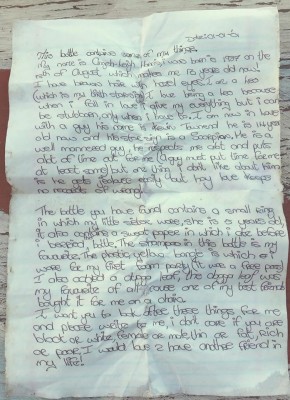 This bottle contains some of my things.
My name is                was born in 1987 on the
  of August, which makes me 13 years old now.
I have brown hair with hazel eyes. I am a Leo
(which is my birth star sign). I love being a leo because
when i fell in love i give my everything but i can
be stubborn, only when i have to. I am now in love
with a guy his name is Kevin          he is 14 year
old now and his star sign is a Scorpion. He is a
well mannered guy, he respects me alot and puts
alot of time out for me (A guy must put time
at least some) but one thing i dont like about him
is he gets jealous easily but my love keeps
no records of wrong.
The bottle you have found contains a small ring
in which my little sister wore, she is 5 years old
it also contains a sweet papper in which i ate before
i          bottle. The          in this bottle is my
favourite. The plastic yellow bangle is which i
wore for my first foam party (it was a free party)
I also added a          bear, the          bear was
my favourite of all cause one of my best friend
bought it for me on a chain.
I want you to look after these things for me
and please write to me, i dont care if you are
black or white, female or male, thin or fat, rich
or poor, I would love 2 have another friend in
my life!